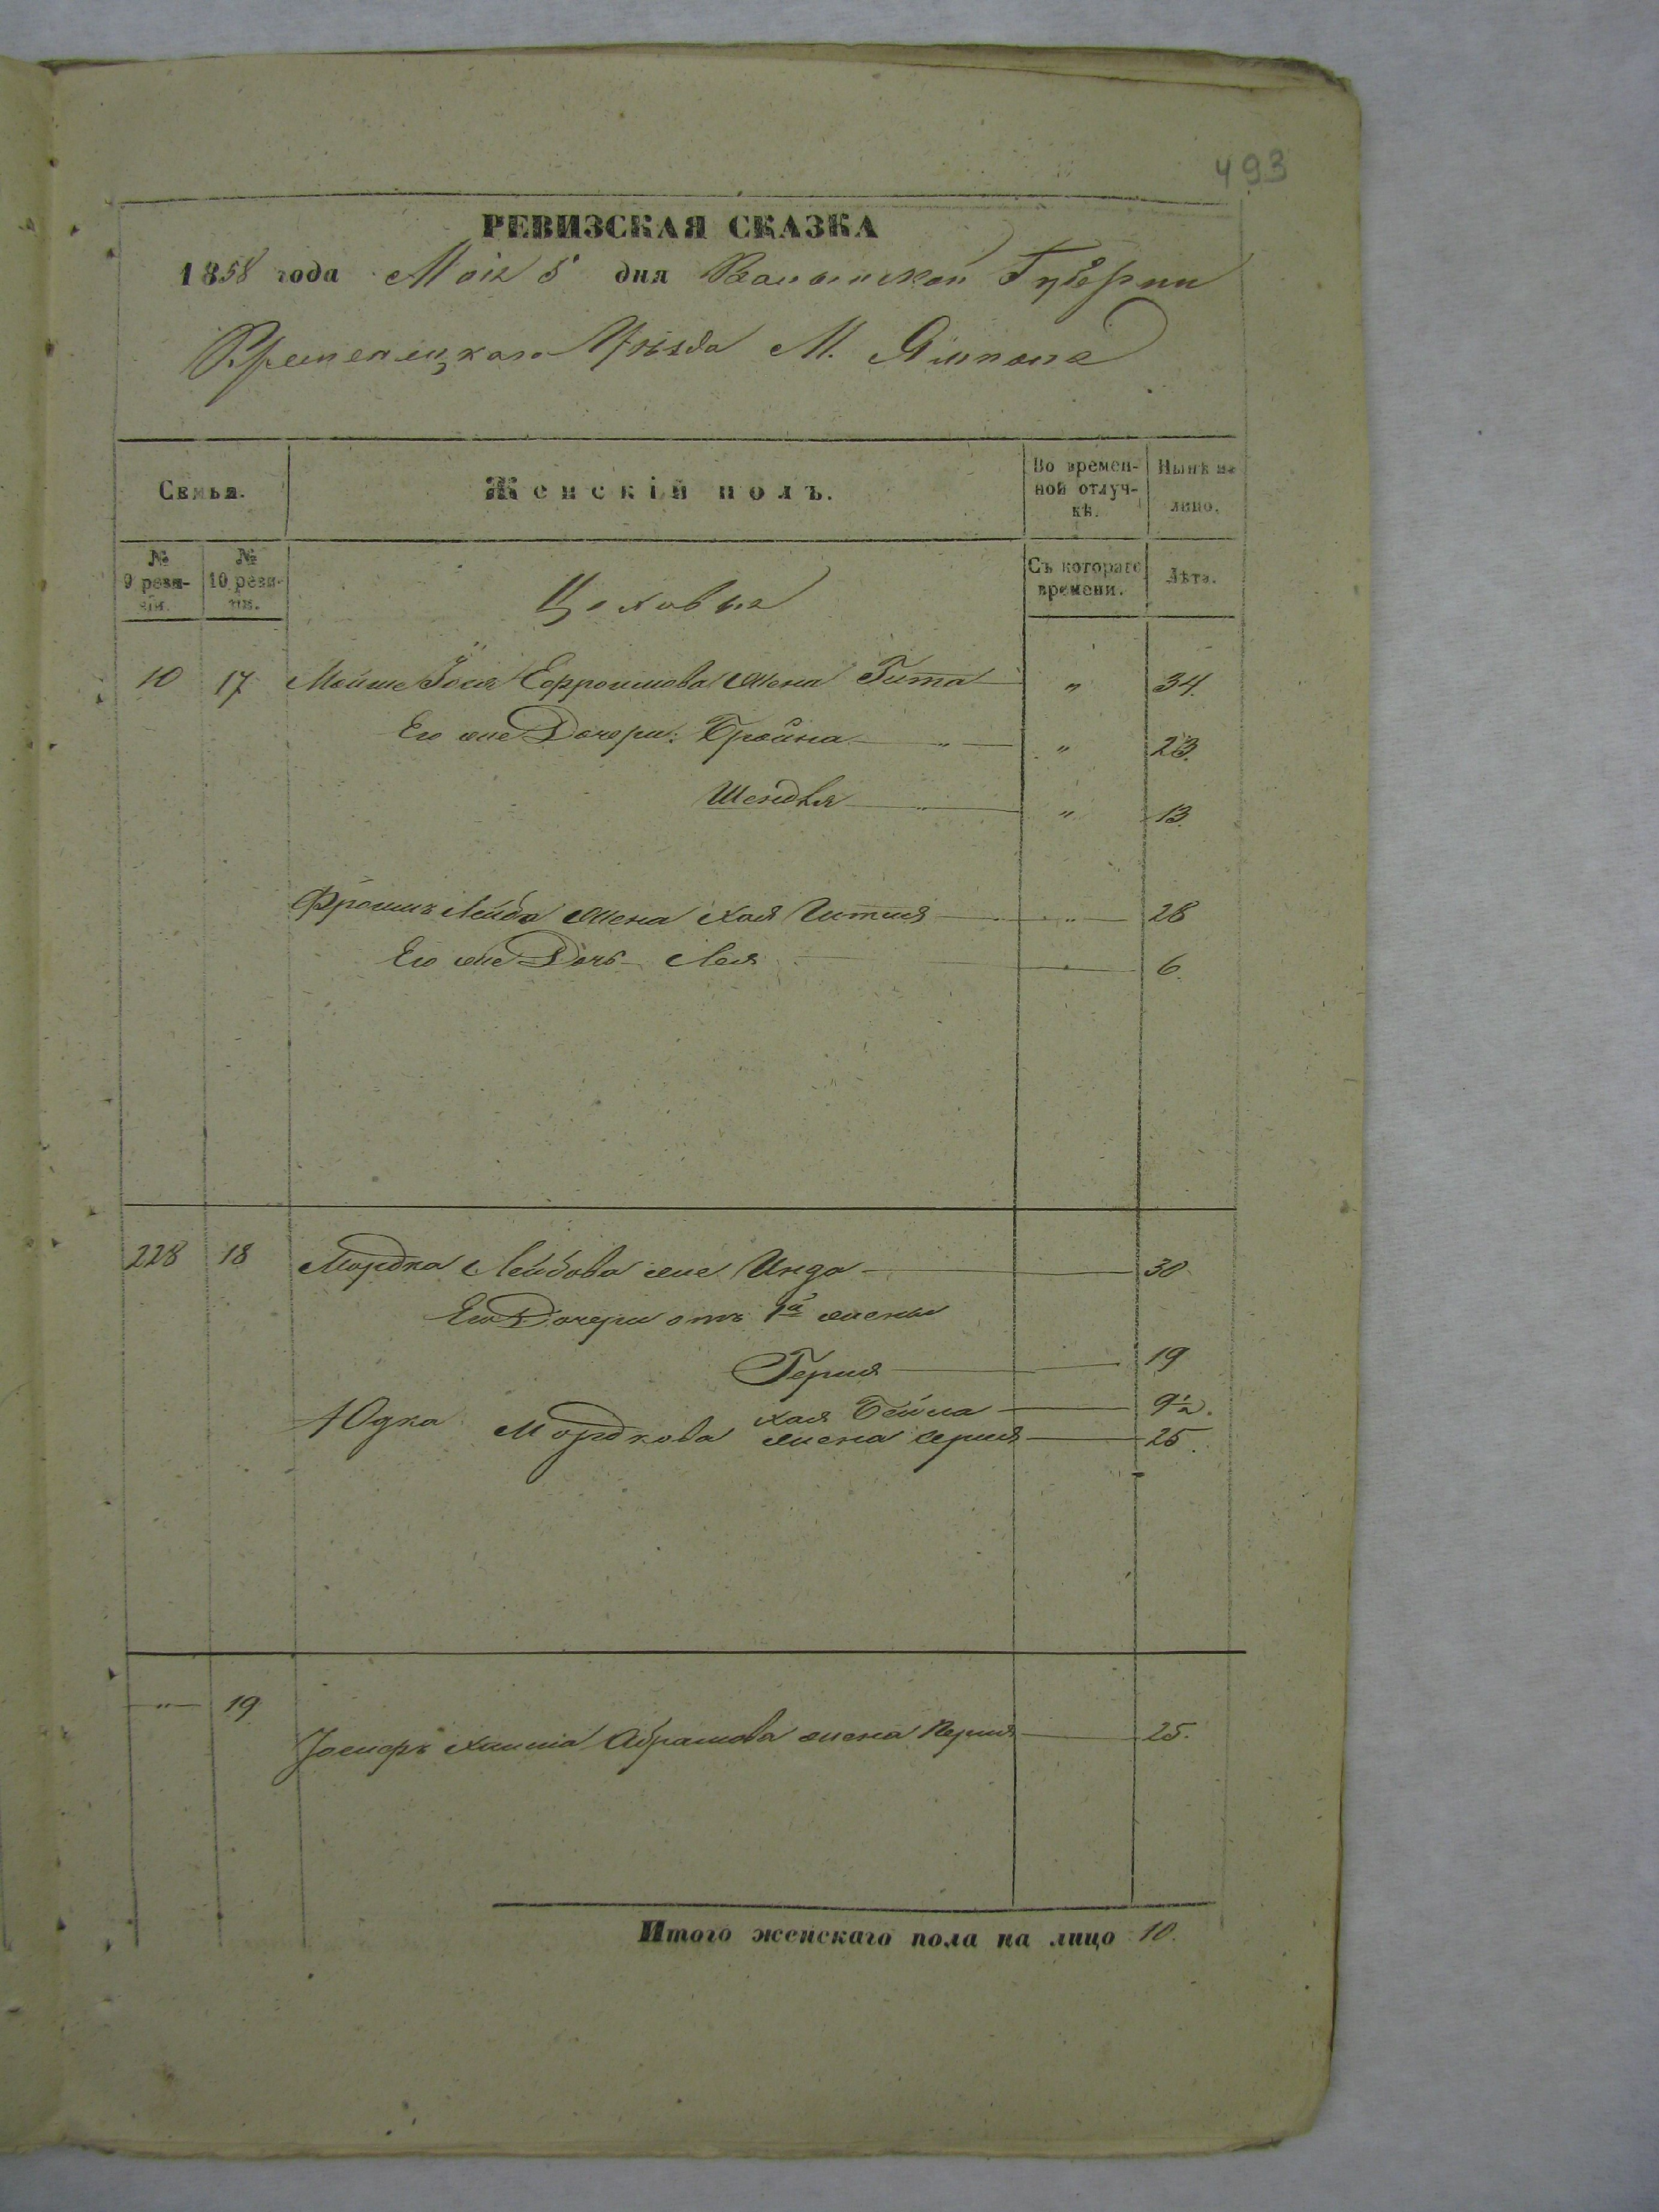 493
РЕВИЗСКАЯ СКАЗКА
1858 года Маія 5 дня Волынской Губерніи
Кременецкаго Уѣзда М. Ямполя
Семья. Женскій полъ. Во времен-ной отлуч-кѣ. Нынѣ на лицо.
№ 9 реви-зіи. № 10 реви-зіи. Съ котораго времени. Лѣта.
Цеховые
10 17 Мойше Іося Ефроимова жена Гитта " 34.
Его же Дочери: Бройна " " 23.
Шендля " " 13.
Фроимъ Лейба жена Хая Гитля " 28
Его же Дочь Лея 6.
228 18 Мордка Лейбова же Инда 30
Его Дочери отъ 1й жены
Перля 19
Хая Бейла 9½.
Юдка Мордкова жена Перля 25.
" 19
Іосифъ Хаима Абрамова жена Перля 25.
Итого женскаго пола на лицо 10.